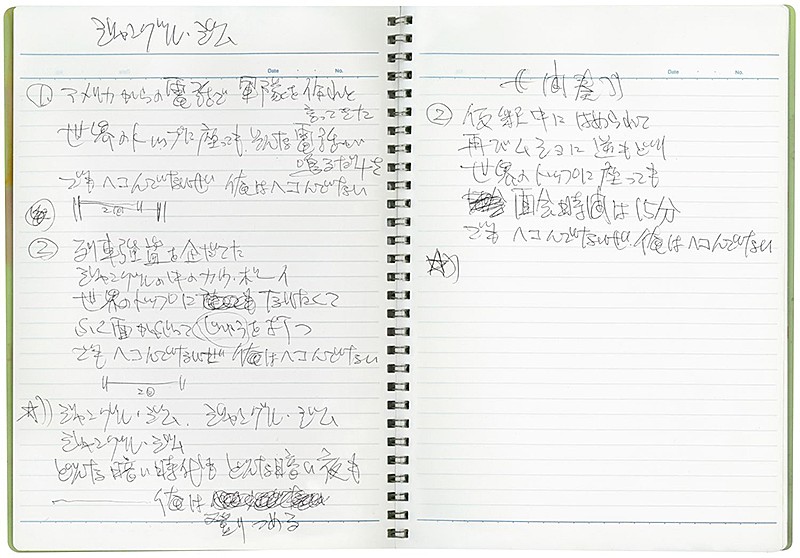 ジャングル・ジム
① アメリカからの電話で 軍隊を作れと
言ってきた
世界のトップに座っても そんな電話が
鳴るだけさ
でも ヘコんでないぜ 俺はヘコんでない
2回
② 列車強盗を企だてた
ジャングルの中のカウ・ボーイ
世界のトップに なりたくて
正面から を
でも ヘコんでないぜ 俺はヘコんでない
2回
☆)) ジャングル・ジム、ジャングル・ジム
ジャングル・ジム
どんな暗い時代も どんな暗い夜も
俺は
登りつめる
Date ・ ・ No.
《間奏》
② 仮釈中に はめられて
再びムショに逆もどり
世界のトップに座っても
面会時間は15分
でも ヘコんでないぜ 俺はヘコんでない
☆))